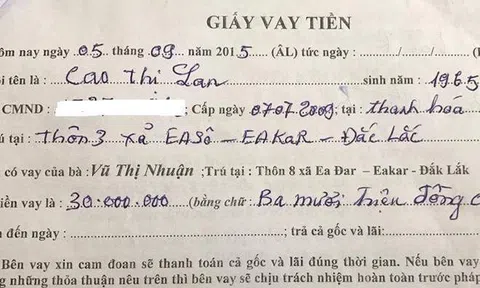 GIẤY VAY TIỀN
ôm nay ngày 05 tháng 09 năm 2015 (ÂL) tức ngày :....../....../......
i tên là : Cao Thị Lan sinh năm : 1965
CMND : Cấp ngày 07.07.2009; tại : thanh hóa
ú tại : Thôn 3 xã EASô - EAKaR - Đắc Lắc
có vay của bà : Vũ Thị Nhuận ;Trú tại : Thôn 8 xã Ea Đar – Eakar - Đắk Lắk
iền vay là : 30.000.000 (bằng chữ : Ba mươi triệu đồng c
n đến ngày : ; trả cả gốc và lãi:
Bên vay xin cam đoan sẽ thanh toán cả gốc và lãi đúng thời gian. Nếu bên vay
g những thỏa thuận nêu trên thì bên vay sẽ chịu trách nhiệm hoàn toàn trước pháp